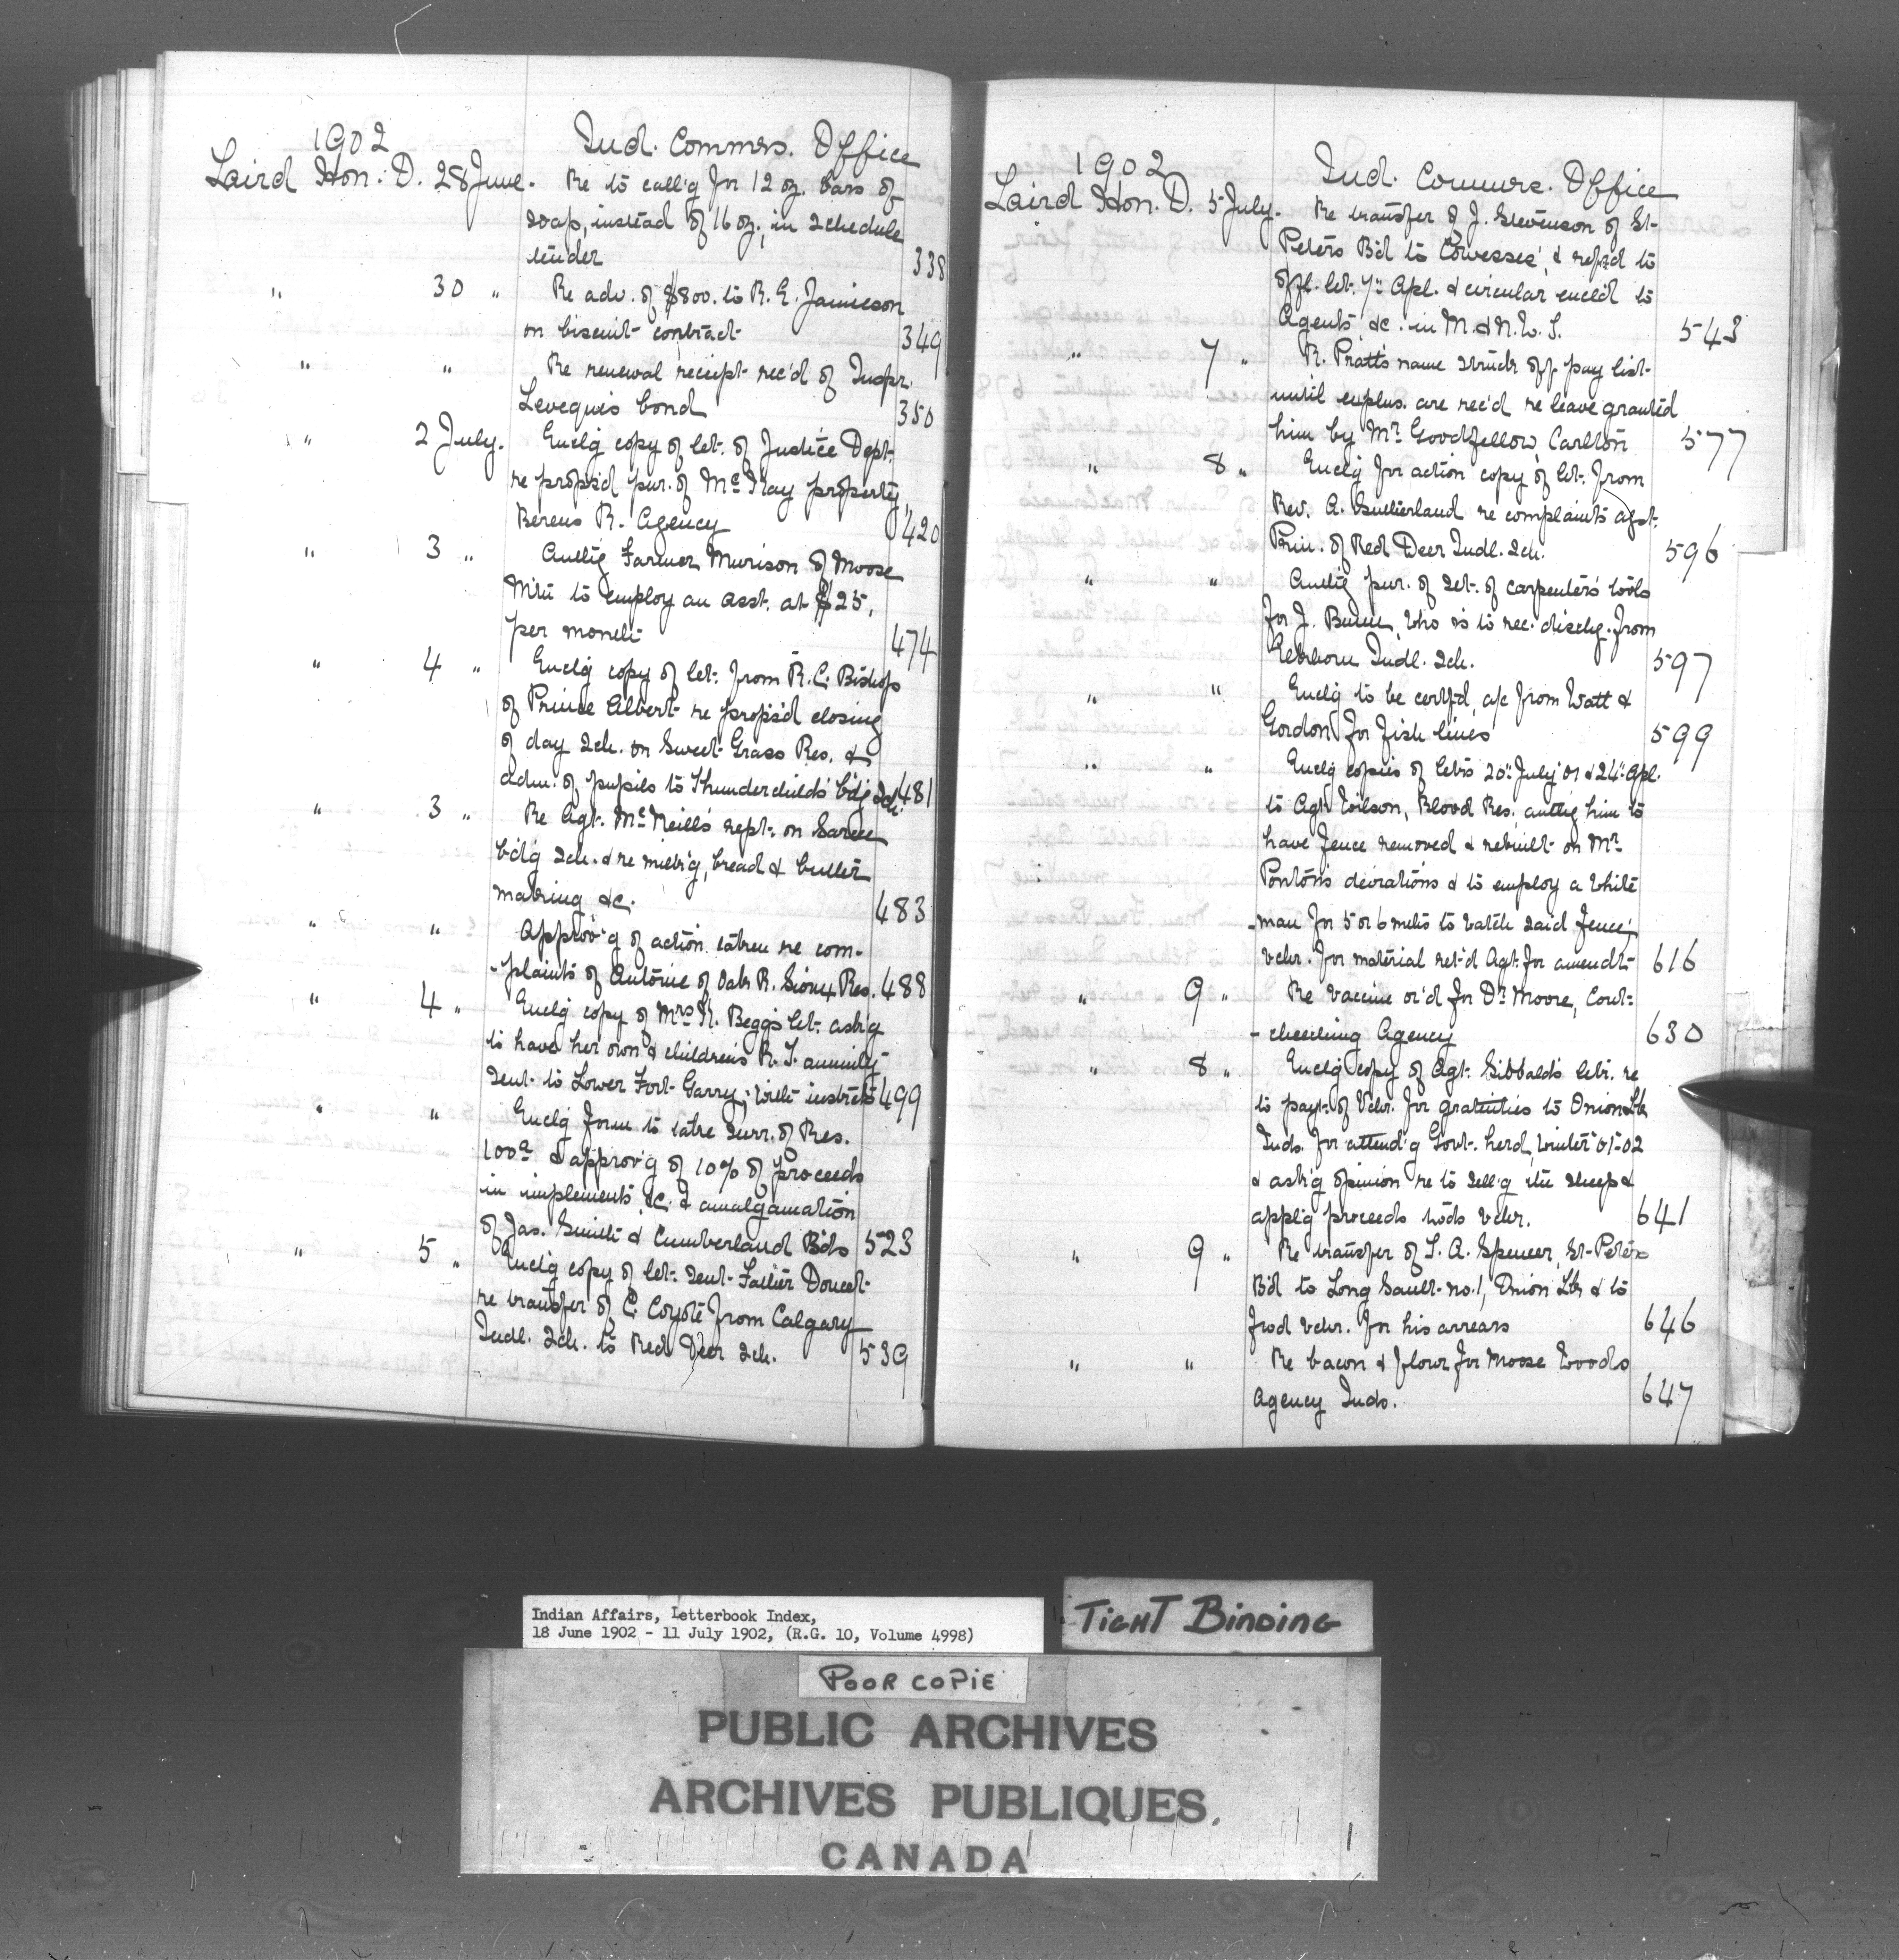 1902 Ind. Commrs. Office
Laird Hon. D. 28 June. Re to call'g for 12 oz. bars of
soap, instead of 16 oz., in schedule
tender 338
" 30 " Re adv. of $800. to R. E. Jamieson
on biscuit contract 349
" " Re renewal receipt rec'd of Inspr.
Leveque's bond 350
" 2 July. Enclg copy of let. of Justice Dept.
re propos'd pur. of McKay property,
Berens R. Agency 420
" 3 " Authg Farmer Murison of Moose
Mtn to employ an asst. at $25,
per month 474
" 4 " Enclg copy of let. from R. C. Bishop
of Prince Albert re propos'd closing
of day sch. on Sweet Grass Res. &
adm. of pupils to Thunderchild's b'd'g sch. 481
" 3 " Re Agt. McNeill's rept. on Sarcee
bdg sch. & re milk'g, bread & butter
making &c. 483
" " Approv'g of action taken re com-
-plaints of Antoine of Oak R. Sioux Res. 488
" 4 " Enclg copy of Mrs N. Begg's let. ask'g
to have her own & children's R. T. annuity
sent to Lower Fort Garry; with instrcts 499
" " Enclg form to take surr. of Res.
100a & approv'g of 10% of proceeds
in implements, &c. & amalgamation
of Jas. Smith & Cumberland B'ds 523
" 5 " Enclg copy of let. sent Father Doucet
re transfer of C. Coyote from Calgary
Indl. sch. to Red Deer sch. 539
1902 Ind. Commrs. Office
Laird Hon. D. 5 July. Re transfer of J. Stevenson of St.
Peters B'd to Cowesses', & ref'd to
offl. let. 7" Apl. & circular encl'd to
Agents &c. in M. & N. W. T. 543
" 7 " R. Pratt's name struck off pay list
until explns. are rec'd re leave granted
him by Mr Goodfellow, Carlton 577
" 8 " Enclg for action copy of let. from
Rev. A. Sutherland re complaints agst.
Prin. of Red Deer Indl. sch. 596
" " Authg pur. of set. of carpenter's tools
for J. who is to rec. dischg. from
Indl. sch. 597
" " Enclg to be certfd, a/c from Watt &
Gordon for fish lines 599
" " Enclg copies of let's 20" July '01 & 24" Apl.
to Agt. Wilson, Blood Res. authg him to
have fence removed & rebuilt on Mr
Ponton's deviations & to employ a white
-man for 5 or 6 mths to watch said fence;
vchr. for material ret'd Agt. for amendt 616
" 9 " Re vaccine or'd for Dr Moore, Cout-
-cheeching Agency 630
" 8 " Enclg copy of Agt. Sibbald's letr. re
to payt. of vchr. for gratuities to Onion Lk
Inds. for attend'g Govt. herd, winter '01-02
& ask'g opinion re to sell'g the sheep &
appl'g proceeds to'ds vchr. 641
" 9 " Re transfer of T. A. Spencer, St-Peters
B'd to Long Sault no. 1, Onion Lk & to
f'w'd vchr. for his arrears 646
" " Re bacon & flour for Moose Woods
Agency Inds. 647
Indian Affairs, Letterbook Index,
18 June 1902 - 11 July 1902, (R.G. 10, Volume 4998)
TIGHT BINDING
POOR COPIE
PUBLIC ARCHIVES
ARCHIVES PUBLIQUES.
CANADA